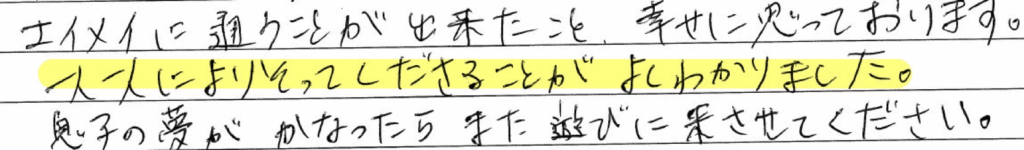 エイメイに通うことが出来たこと、幸せに思っております。
一人一人によりそってくださることがよくわかりました。
息子の夢がかなったらまた遊びに来させてください。